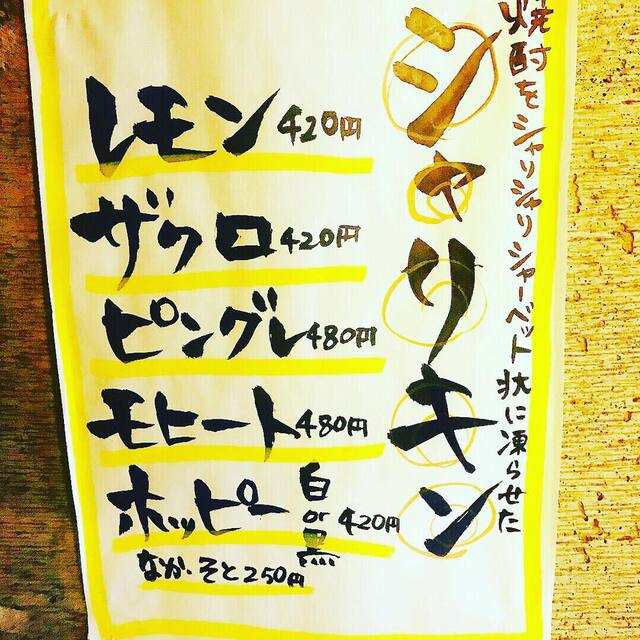 焼酎をシャリシャリシャーベット状に凍らせた
シャリキン
レモン 420円
ザクロ 420円
ピングレ 480円
モヒート 480円
ホッピー 白or黒 420円
なか・そと250円